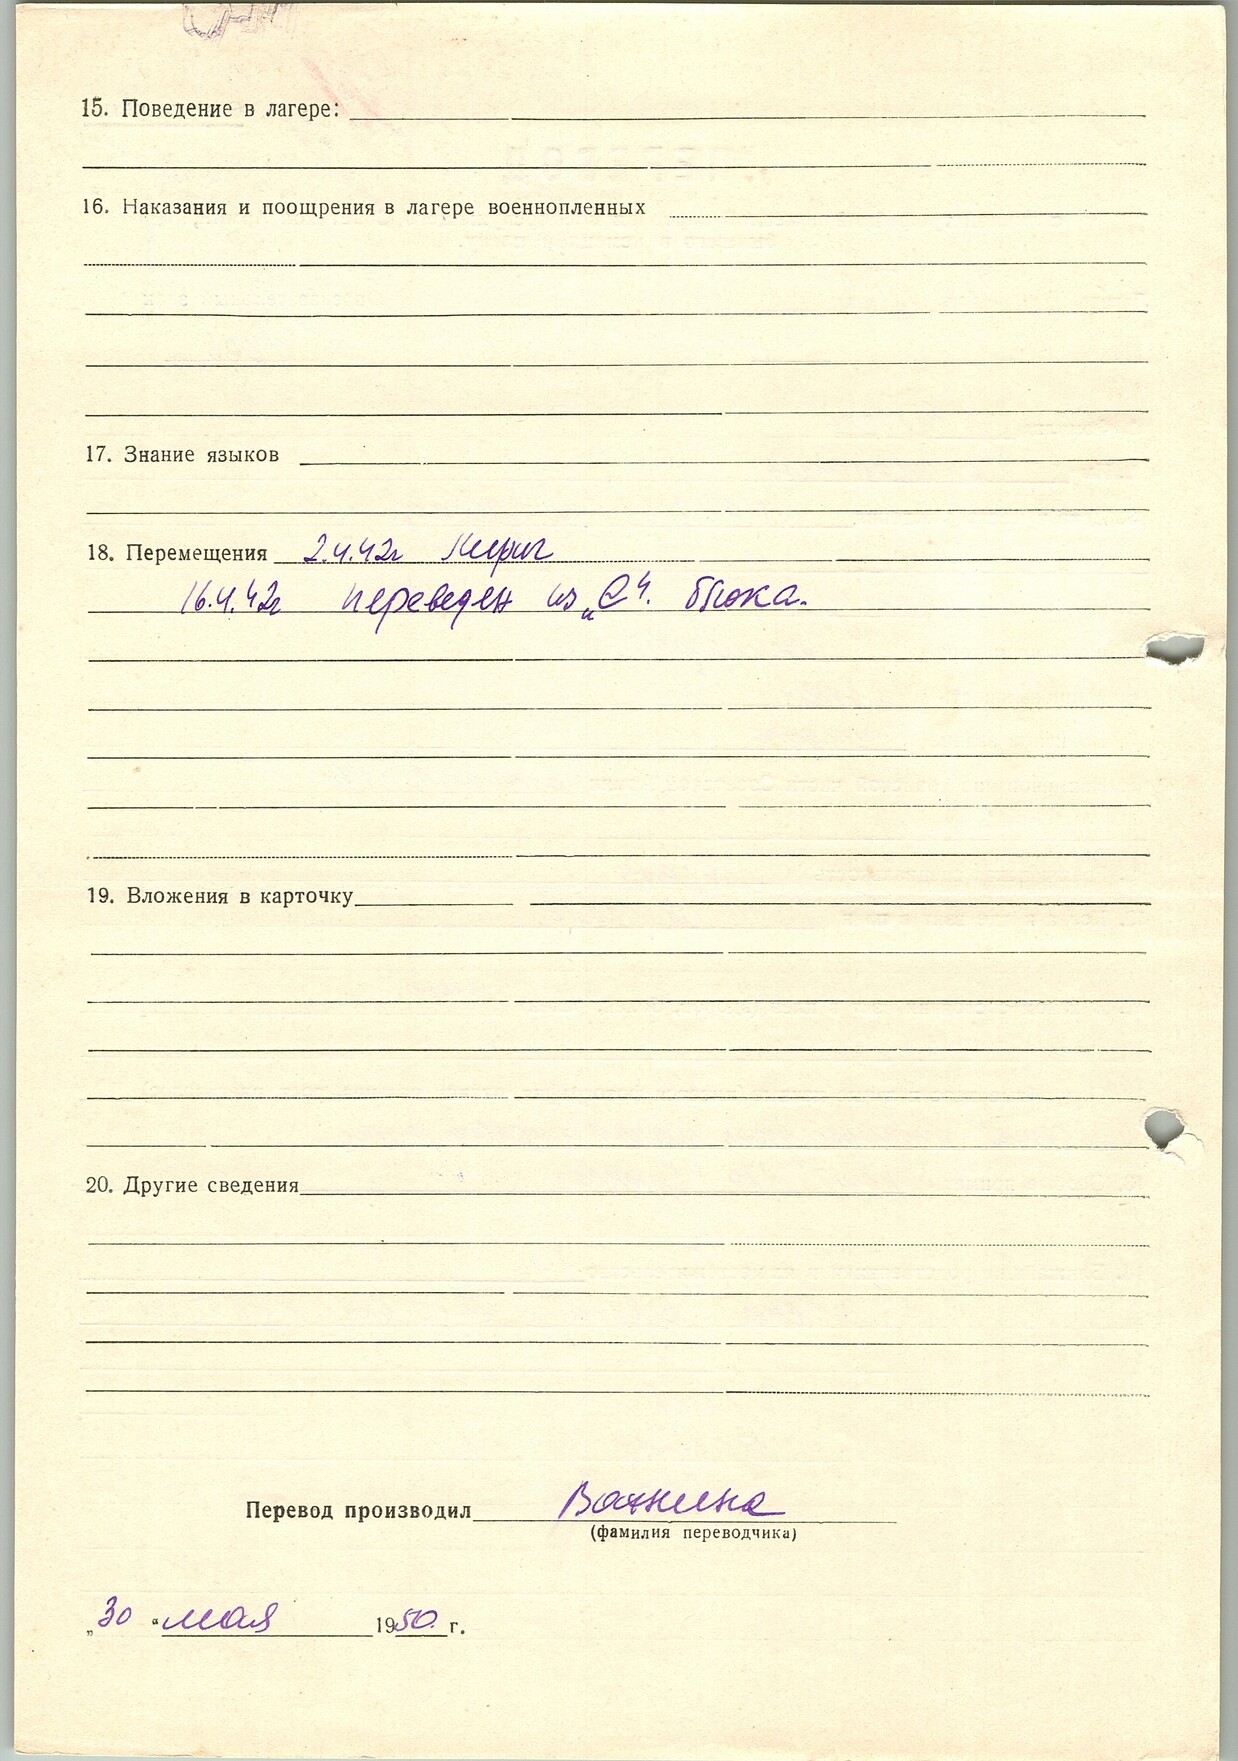 15. Поведение в лагере:
16. Наказания и поощрения в лагере военнопленных
17. Знание языков
18. Перемещения 2.4.42г
16.4.42г переведен из „С“ блока.
19. Вложения в карточку
20. Другие сведения
Перевод производил
(фамилия переводчика)
„30“ мая 1950 г.